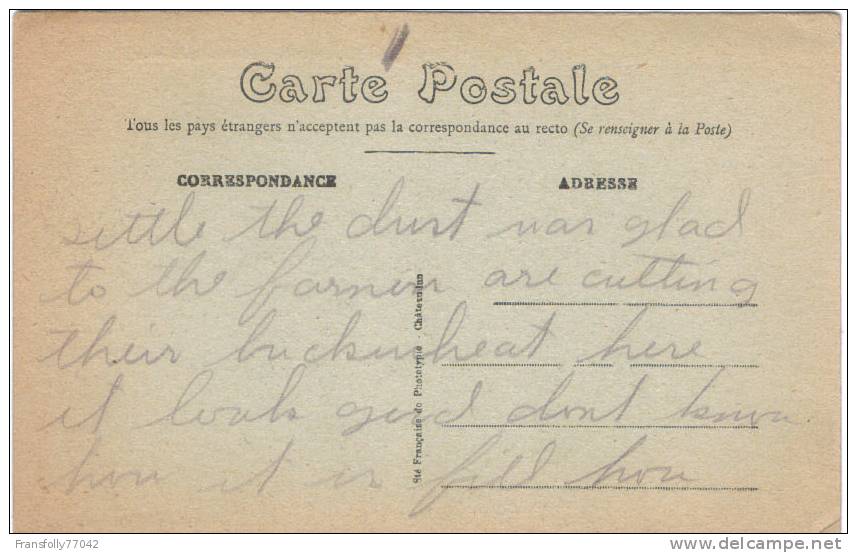 Carte Postale
Tous les pays étrangers n'acceptent pas la correspondance au recto (Se renseigner à la Poste)
CORRESPONDANCE
ADRESSE
settle the dust was glad
to the farmers are cutting
their buckwheat here
it looks good dont know
how it is fill how
Sté Française de Phototypie Châteaudun
Fransfolly77042
delcampe.net